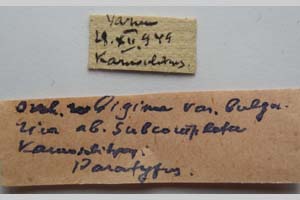 Varna
29.XII.949
Karnoschitzky.
Orth. rubiginea var. bulga-
rica ab. Subcompleta
Karnoschitzky.
Paratypus.